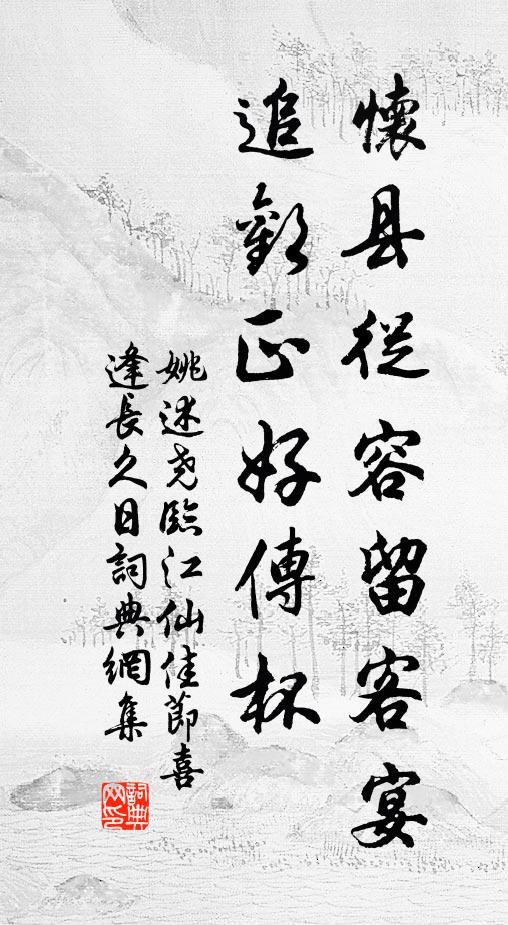 懷县從容留客宴
追歡正好傳杯
姚述尧臨江仙佳節喜
逢長久日詞典網集
詞典网印